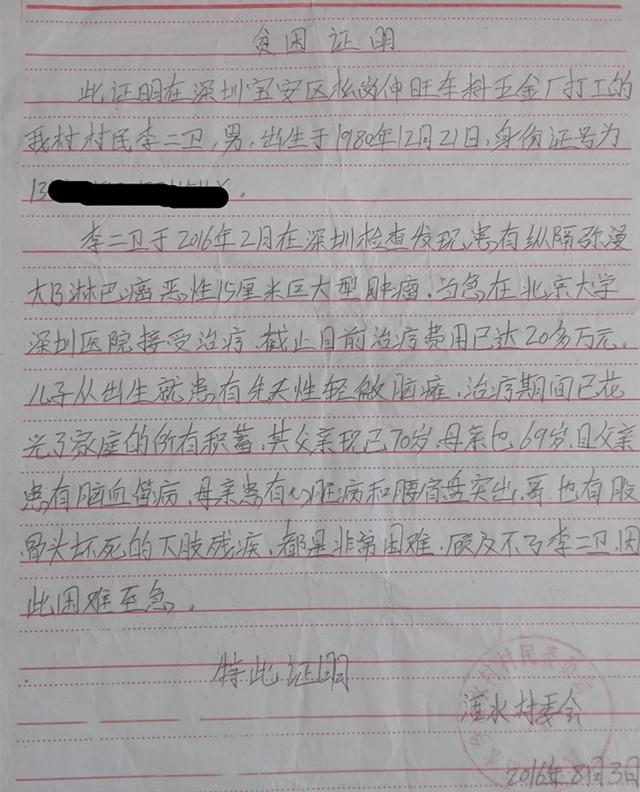 贫困证明
此证明在深圳宝安区松岗伸旺车料五金厂打工的
我村村民李二卫,男,出生于1980年12月21日,身份证号为
13
李二卫于2016年2月在深圳检查发现,患有纵隔弥漫
大B淋巴癌恶性15厘米巨大型肿瘤.当急在北京大学
深圳医院接受治疗,截止目前治疗费用已达20多万元。
儿子从出生就患有先天性轻微脑瘫,治疗期间已花
光了家庭的所有积蓄,其父亲现已70岁,母亲也69岁,且父亲
患有脑血管病,母亲患有心脏病和腰间盘突出,哥也有股
骨头坏死的下肢残疾,都是非常困难,顾及不了李二卫,因
此困难至急。
特此证明
村村民委员会
洼水村委会
2016年8月3日